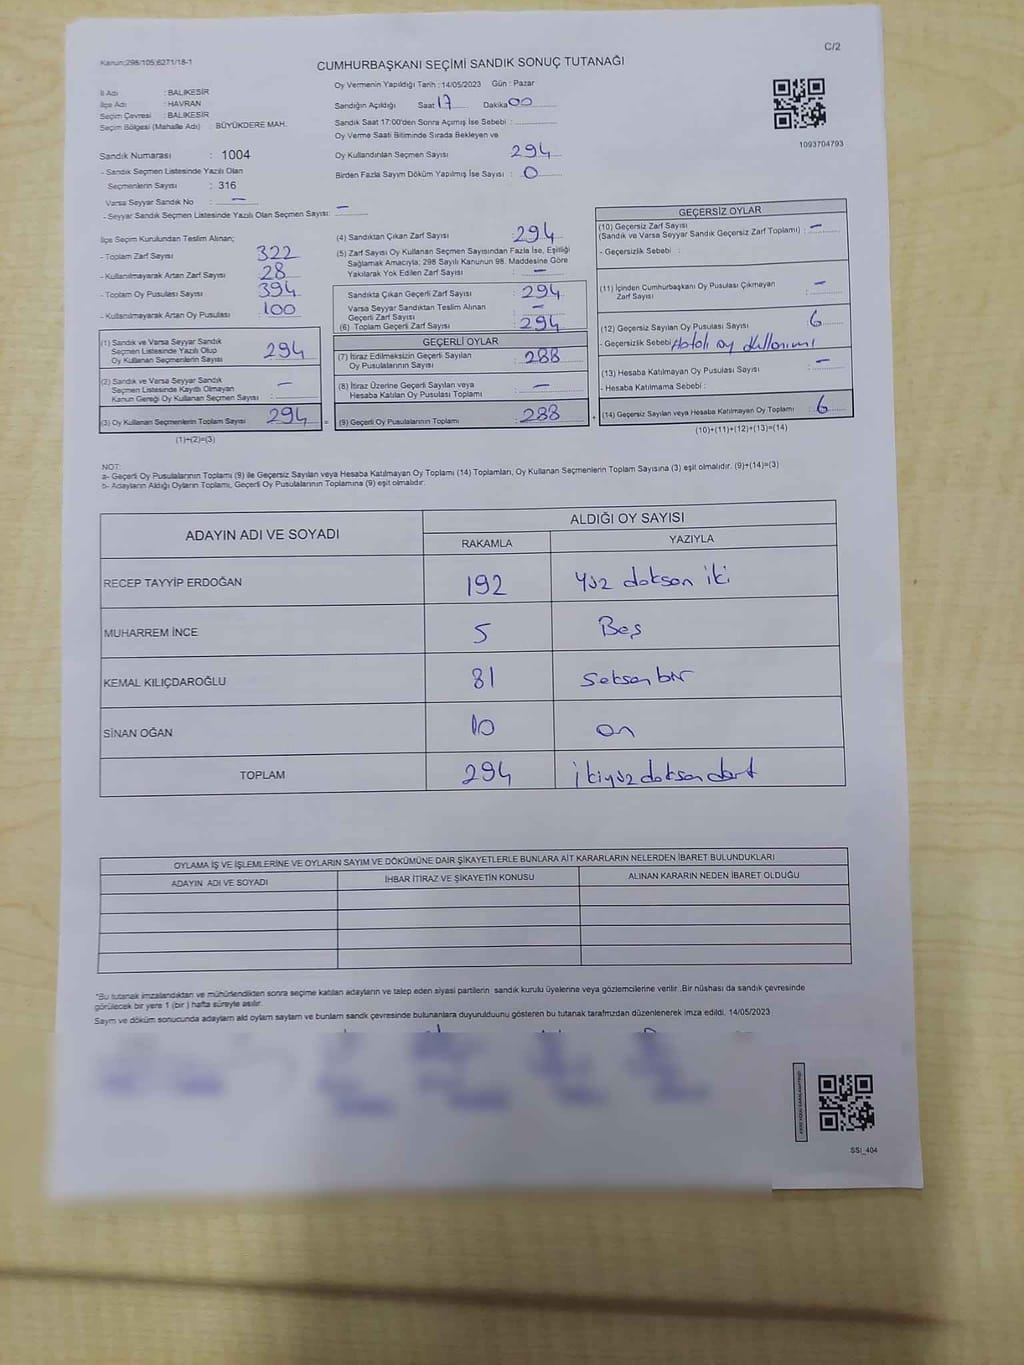 C/2
Kanun;298/105;6271/18-1
CUMHURBAŞKANI SEÇİMİ SANDIK SONUÇ TUTANAĞI
İl Adı : BALIKESİR
İlçe Adı : HAVRAN
Seçim Çevresi : BALIKESİR
Seçim Bölgesi (Mahalle Adı) : BÜYÜKDERE MAH.
Oy Vermenin Yapıldığı Tarih : 14/05/2023 Gün : Pazar
Sandığın Açıldığı Saat 17 Dakika 00
Sandık Saat 17:00'den Sonra Açımış İse Sebebi :
Oy Verme Saati Bitiminde Sırada Bekleyen ve
Oy Kullandırılan Seçmen Sayısı 294
Birden Fazla Sayım Döküm Yapılmış İse Sayısı : 0
1093704793
Sandık Numarası : 1004
- Sandık Seçmen Listesinde Yazılı Olan
Seçmenlerin Sayısı : 316
Varsa Seyyar Sandık No : —
- Seyyar Sandık Seçmen Listesinde Yazılı Olan Seçmen Sayısı: —
İlçe Seçim Kurulundan Teslim Alınan;
- Toplam Zarf Sayısı 322
- Kullanılmayarak Artan Zarf Sayısı 28
- Toplam Oy Pusulası Sayısı 394
- Kullanılmayarak Artan Oy Pusulası 100
(1) Sandık ve Varsa Seyyar Sandık
Seçmen Listesinde Yazılı Olup
Oy Kullanan Seçmenlerin Sayısı 294
(2) Sandık ve Varsa Seyyar Sandık
Seçmen Listesinde Kayıtlı Olmayan
Kanun Gereği Oy Kullanan Seçmen Sayısı : —
(3) Oy Kullanan Seçmenlerin Toplam Sayısı 294
(1)+(2)=(3)
(4) Sandıktan Çıkan Zarf Sayısı 294
(5) Zarf Sayısı Oy Kullanan Seçmen Sayısından Fazla İse, Eşitliği
Sağlamak Amacıyla; 298 Sayılı Kanunun 98. Maddesine Göre
Yakılarak Yok Edilen Zarf Sayısı : —
Sandıkta Çıkan Geçerli Zarf Sayısı : 294
Varsa Seyyar Sandıktan Teslim Alınan
Geçerli Zarf Sayısı : —
(6) Toplam Geçerli Zarf Sayısı : 294
GEÇERLİ OYLAR
(7) İtiraz Edilmeksizin Geçerli Sayılan
Oy Pusulalarının Sayısı : 288
(8) İtiraz Üzerine Geçerli Sayılan veya
Hesaba Katılan Oy Pusulası Toplamı : —
= (9) Geçerli Oy Pusulalarının Toplamı : 288
GEÇERSİZ OYLAR
(10) Geçersiz Zarf Sayısı
(Sandık ve Varsa Seyyar Sandık Geçersiz Zarf Toplamı) : —
- Geçersizlik Sebebi :
(11) İçinden Cumhurbaşkanı Oy Pusulası Çıkmayan
Zarf Sayısı : —
(12) Geçersiz Sayılan Oy Pusulası Sayısı : 6
- Geçersizlik Sebebi Hatalı oy kullanımı
(13) Hesaba Katılmayan Oy Pusulası Sayısı : —
- Hesaba Katılmama Sebebi :
+ (14) Geçersiz Sayılan veya Hesaba Katılmayan Oy Toplamı : 6
(10)+(11)+(12)+(13)=(14)
NOT:
a- Geçerli Oy Pusulalarının Toplamı (9) ile Geçersiz Sayılan veya Hesaba Katılmayan Oy Toplamı (14) Toplamları, Oy Kullanan Seçmenlerin Toplam Sayısına (3) eşit olmalıdır. (9)+(14)=(3)
b- Adayların Aldığı Oyların Toplamı, Geçerli Oy Pusulalarının Toplamına (9) eşit olmalıdır.
ADAYIN ADI VE SOYADI ALDIĞI OY SAYISI
RAKAMLA YAZIYLA
RECEP TAYYİP ERDOĞAN 192 Yüz doksan iki
MUHARREM İNCE 5 Beş
KEMAL KILIÇDAROĞLU 81 Seksen bir
SİNAN OĞAN 10 on
TOPLAM 294 ikiyüz doksan dört
OYLAMA İŞ VE İŞLEMLERİNE VE OYLARIN SAYIM VE DÖKÜMÜNE DAİR ŞİKAYETLERLE BUNLARA AİT KARARLARIN NELERDEN İBARET BULUNDUKLARI
ADAYIN ADI VE SOYADI İHBAR İTİRAZ VE ŞİKAYETİN KONUSU ALINAN KARARIN NEDEN İBARET OLDUĞU
"Bu tutanak imzalandıktan ve mühürlendikten sonra seçime katılan adayların ve talep eden siyasi partilerin sandık kurulu üyelerine veya gözlemcilerine verilir. Bir nüshası da sandık çevresinde
görülecek bir yere 1 (bir) hafta süreyle asılır.
Sayım ve döküm sonucunda adayların ald oyların sayıların ve bunların sandık çevresinde bulunanlara duyurulduunu gösteren bu tutanak tarafımızdan düzenlenerek imza edildi. 14/05/2023
SSI_404